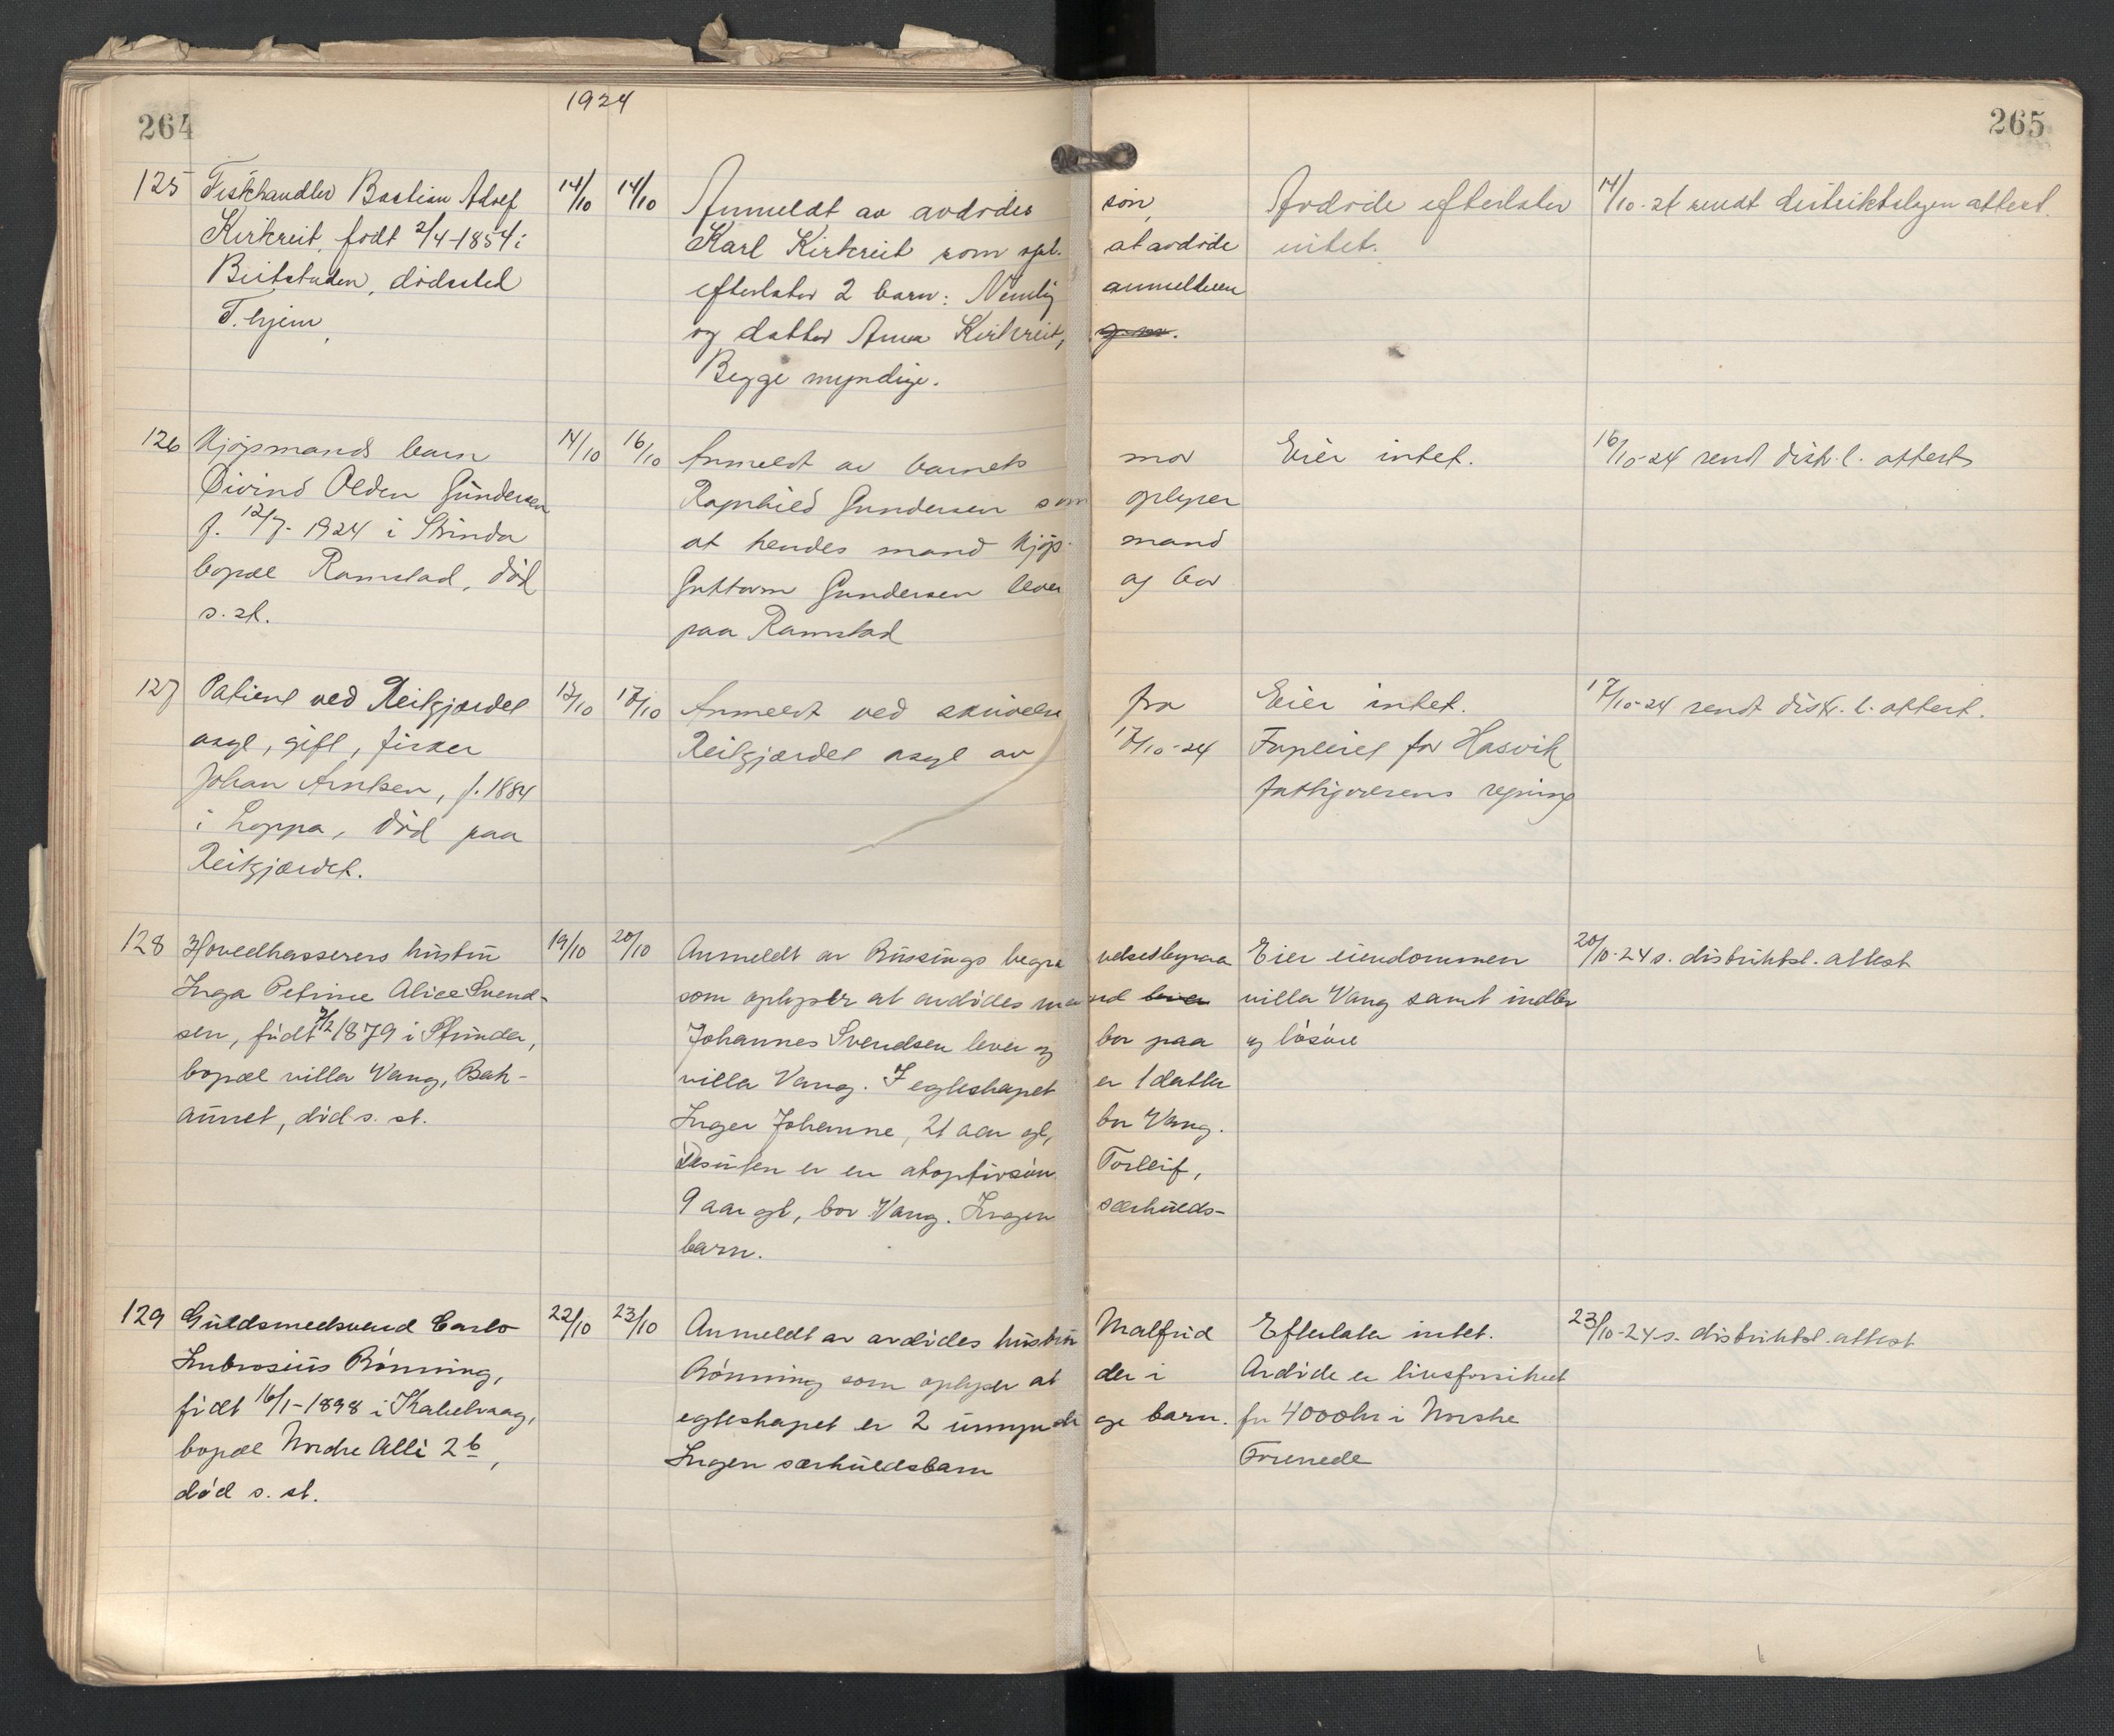 264
1924
265
125 Fiskehandler Bastian Adolf 14/10 14/10 Anmeldt av avdødes søn, Avdøde efterlater 14/10-24 sendt distriktslegen attest.
Kirkreit, født 2/4-1854 i Karl Kirkreit som opl. at avdøde intet.
Beitstaden, dødssted efterlater 2 barn: Nemlig anmelderen
T.hjem, og datter Anna Kirkreit,
Begge myndige.
126 Kjøpmands barn 14/10 16/10 Anmeldt av barnets mor Eier intet. 16/10-24 sendt distr. l. attest
Øivind Olden Gundersen Ragnhild Gundersen som oplyser
f. 12/7-1924 i Strinda at hendes mand kjøp- mand
bopæl Ramstad, død Guttorm Gundersen lever og bor
s. st. paa Ramstad
127 Patient ved Reitgjærdet 17/10 Anmeldt ved skrivelse fra Eier intet. 17/10-24 sendt distr. l. attest.
asyl, gift, fisker Reitgjærdet asyl av 17/10-24 Forpleiet for Hasvik
Johan Arntsen, f. 1884 fattigvesens regning
i Loppa, død paa
Reitgjærdet.
128 Hovedkasserers hustru 19/10 20/10 Anmeldt av Bussings begravelsesbyraa Eier eiendommen 20/10-24 s. distriktsl. attest
Inga Petrine Alice Svend- som oplyser at avdødes mand lever villa Vang samt indbo
sen, født 7/2 1879 i Strinda, Johannes Svendsen lever og bor paa og løsøre
bopæl villa Vang, Bak- villa Vang. I egteskapet er 1 datter
aunet, død s. st. Inger Johanne, 21 aar gl, bor Vang.
Desuten er en atoptivsøn Torleif,
9 aar gl, bor Vang. Ingen særkulds-
barn.
129 Guldsmedsvend Carlo 22/10 23/10 Anmeldt av avdødes hustru Malfrid Efterlater intet. 23/10-24 s. distriktsl. attest
Ambrosius Rønning, Rønning som oplyser at der i Avdøde er livsforsikret
født 16/1-1898 i Kabelvaag, egteskapet er 2 umyndige barn. for 4000 kr i Norske
bopæl Nordre Allè 2b, Ingen særkuldsbarn Forenede
død s. st.